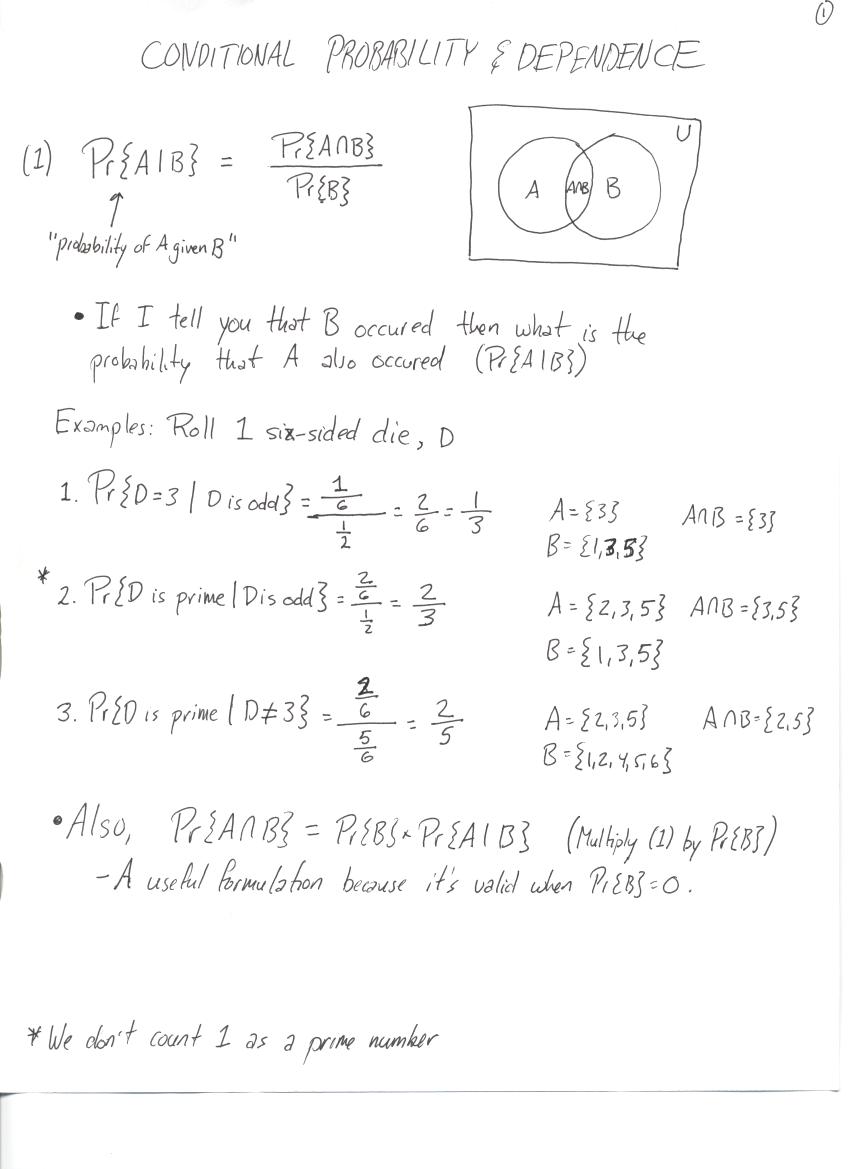 ①
CONDITIONAL PROBABILITY & DEPENDENCE
(1) Pr{A|B} = Pr{A∩B} / Pr{B}
U
A A∩B B
"probability of A given B"
• If I tell you that B occured then what is the
probability that A also occured (Pr{A|B})
Examples: Roll 1 six-sided die, D
1. Pr{D=3 | D is odd} = (1/6)/(1/2) = 2/6 = 1/3 A={3} A∩B={3}
B={1,3,5}
* 2. Pr{D is prime | D is odd} = (2/6)/(1/2) = 2/3 A={2,3,5} A∩B={3,5}
B={1,3,5}
3. Pr{D is prime | D≠3} = (2/6)/(5/6) = 2/5 A={2,3,5} A∩B={2,5}
B={1,2,4,5,6}
• Also, Pr{A∩B} = Pr{B}*Pr{A|B} (Multiply (1) by Pr{B})
- A useful formulation because it's valid when Pr{B}=0.
* We don't count 1 as a prime number